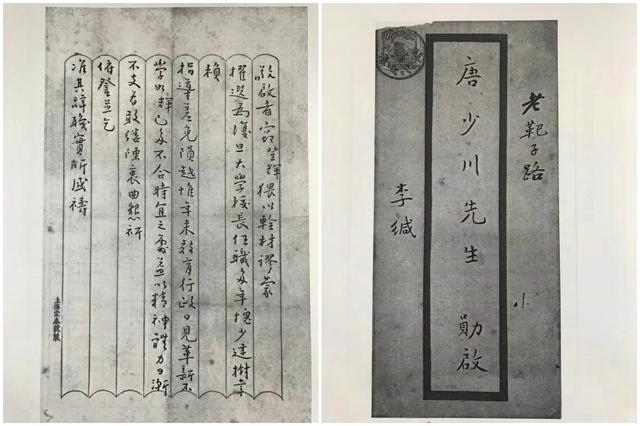 敬啟者竊登輝猥以輇材謬蒙
擢選為復旦大學校長任職多年愧少建樹幸
賴
指導差免隕越惟年來教育行政日見革新不
學如輝已多不合時宜之處益以精神體力日漸
不支為敢縷陳衷曲懇祈
俯鑒並乞
准其辭職實所感禱
老靶子路
小
唐少川先生 勛啟
李緘